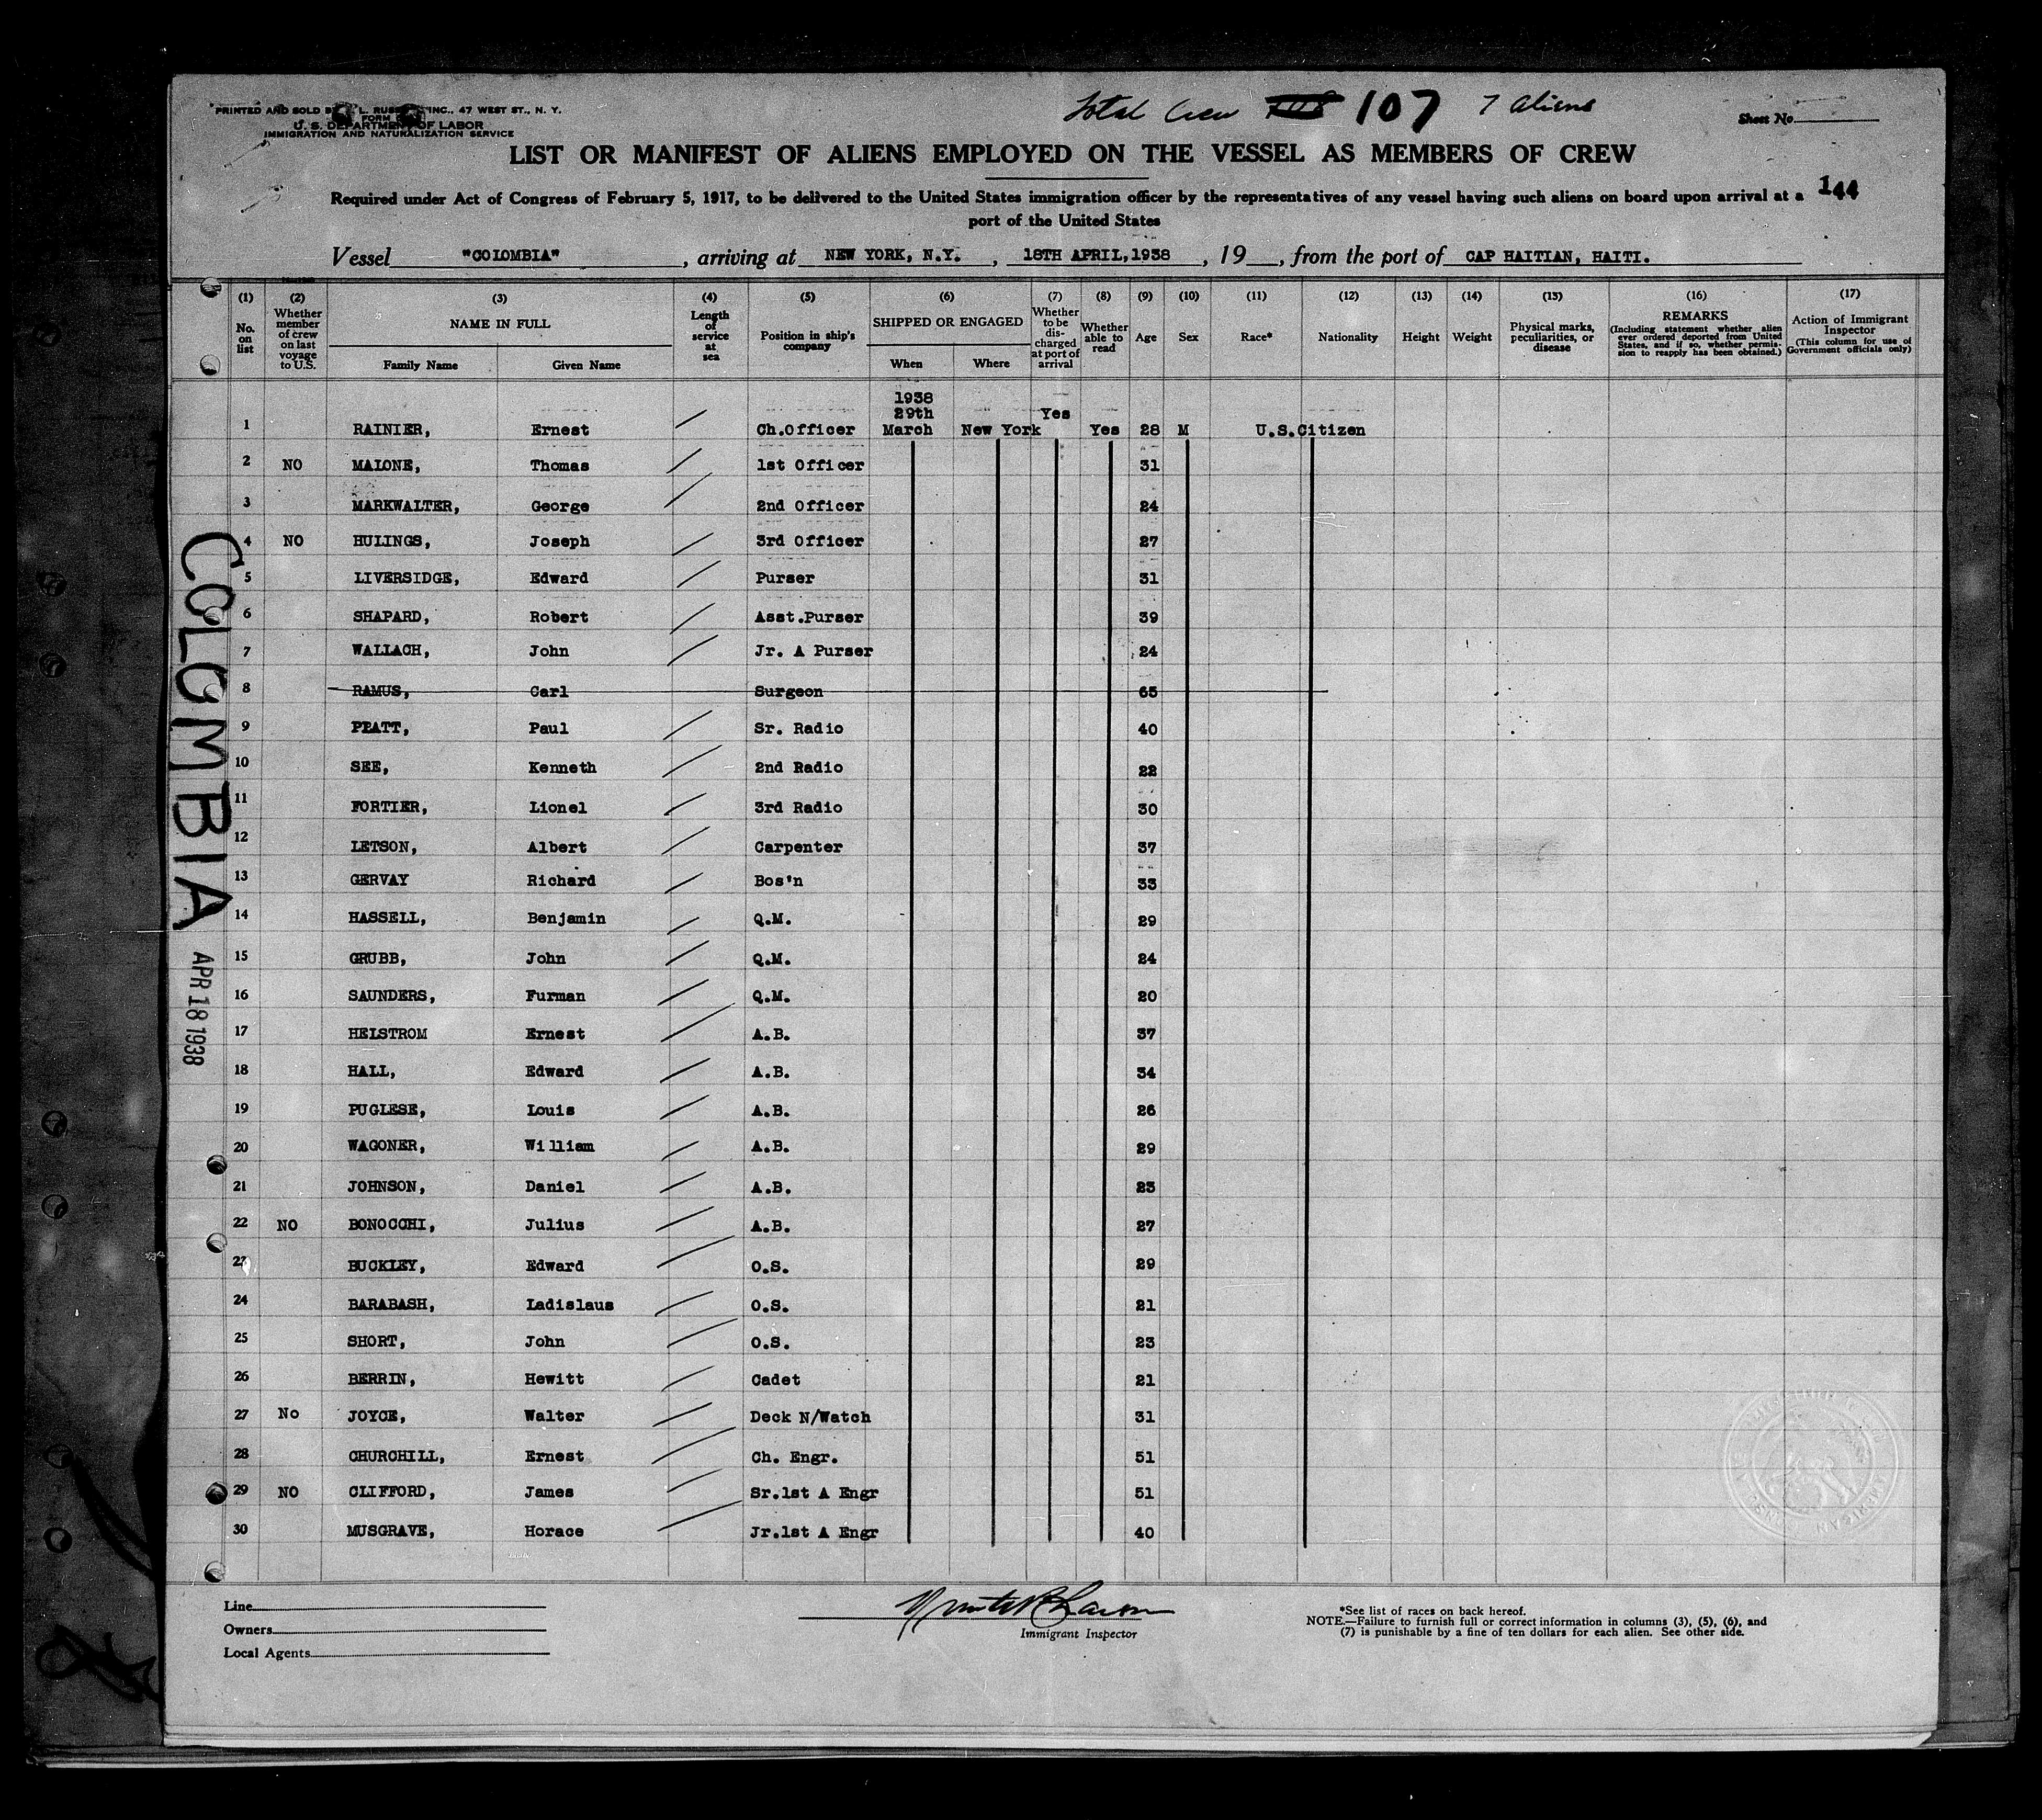 Total Crew 107 7 aliens
PRINTED AND SOLD L. INC., 47 WEST ST., N. Y.
FORM
U. S. DEPARTMENT OF LABOR
IMMIGRATION AND NATURALIZATION SERVICE
Sheet No.
LIST OR MANIFEST OF ALIENS EMPLOYED ON THE VESSEL AS MEMBERS OF CREW
Required under Act of Congress of February 5, 1917, to be delivered to the United States immigration officer by the representatives of any vessel having such aliens on board upon arrival at a
port of the United States
144
Vessel "COLOMBIA", arriving at NEW YORK, N.Y., 18TH APRIL, 1938, 19__, from the port of CAP HAITIAN, HAITI.
(1) No. on list
(2) Whether member of crew on last voyage to U.S.
(3) NAME IN FULL
Family Name Given Name
(4) Length of service at sea
(5) Position in ship's company
(6) SHIPPED OR ENGAGED
When Where
(7) Whether to be discharged at port of arrival
(8) Whether able to read
(9) Age
(10) Sex
(11) Race*
(12) Nationality
(13) Height
(14) Weight
(15) Physical marks, peculiarities, or disease
(16) REMARKS (Including statement whether alien ever ordered deported from United States, and if so, whether permission to reapply has been obtained.)
(17) Action of Immigrant Inspector (This column for use of Government officials only)
1938
29th Yes
1 RAINIER, Ernest Ch.Officer March New York Yes 28 M U.S.Citizen
2 NO MALONE, Thomas 1st Officer 31
3 MARKWALTER, George 2nd Officer 24
4 NO HULINGS, Joseph 3rd Officer 27
5 LIVERSIDGE, Edward Purser 31
6 SHAPARD, Robert Asst.Purser 39
7 WALLACH, John Jr. A Purser 24
8 RAMUS, Carl Surgeon 65
9 PRATT, Paul Sr. Radio 40
10 SEE, Kenneth 2nd Radio 22
11 FORTIER, Lionel 3rd Radio 30
12 LETSON, Albert Carpenter 37
13 GERVAY Richard Bos'n 33
14 HASSELL, Benjamin Q.M. 29
15 GRUBB, John Q.M. 24
16 SAUNDERS, Furman Q.M. 20
17 HELSTROM Ernest A.B. 37
18 HALL, Edward A.B. 34
19 PUGLESE, Louis A.B. 26
20 WAGONER, William A.B. 29
21 JOHNSON, Daniel A.B. 23
22 NO BONOCCHI, Julius A.B. 27
23 BUCKLEY, Edward O.S. 29
24 BARABASH, Ladislaus O.S. 21
25 SHORT, John O.S. 23
26 BERRIN, Hewitt Cadet 21
27 No JOYCE, Walter Deck N/Watch 31
28 CHURCHILL, Ernest Ch. Engr. 51
29 NO CLIFFORD, James Sr.1st A Engr 51
30 MUSGRAVE, Horace Jr.1st A Engr 40
COLOMBIA
APR 18 1938
Line
Owners
Local Agents
Immigrant Inspector
*See list of races on back hereof.
NOTE.—Failure to furnish full or correct information in columns (3), (5), (6), and
(7) is punishable by a fine of ten dollars for each alien. See other side.